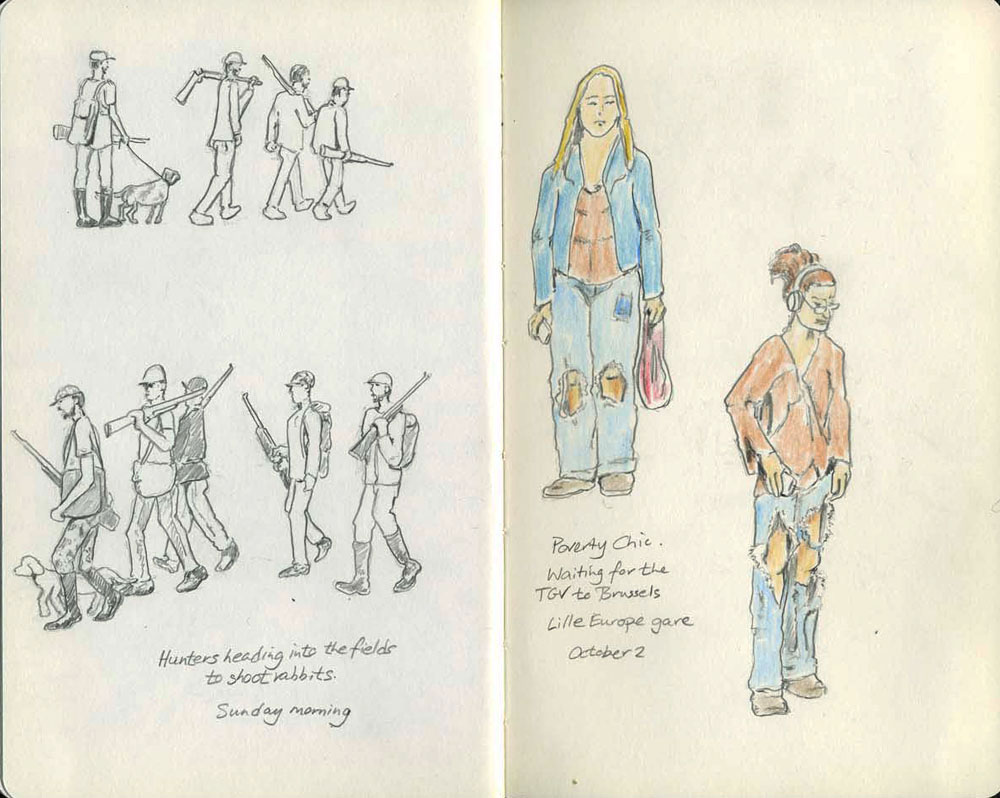 Hunters heading into the fields
to shoot rabbits.
Sunday morning
Poverty Chic.
Waiting for the
TGV to Brussels
Lille Europe gare
October 2